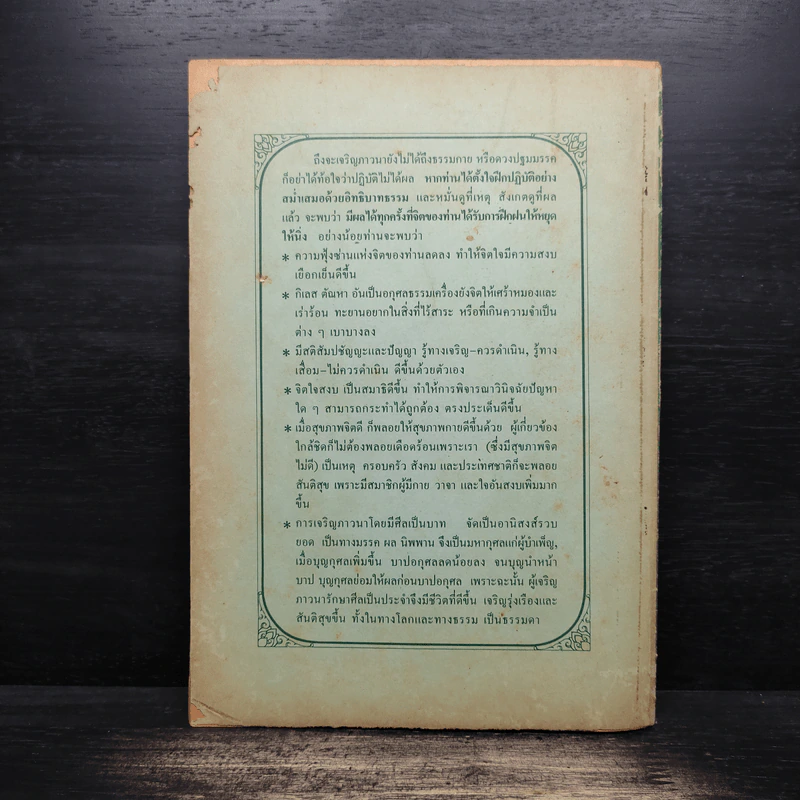 ถึงจะเจริญภาวนายังไม่ได้ถึงธรรมกาย หรือดวงปฐมมรรค
ก็อย่าได้ท้อใจว่าปฏิบัติไม่ได้ผล หากท่านได้ตั้งใจฝึกปฏิบัติอย่าง
สม่ำเสมอด้วยอิทธิบาทธรรม และหมั่นดูที่เหตุ สังเกตดูที่ผล
แล้ว จะพบว่า มีผลได้ทุกครั้งที่จิตของท่านได้รับการฝึกฝนให้หยุด
ให้นิ่ง อย่างน้อยท่านจะพบว่า
* ความฟุ้งซ่านแห่งจิตของท่านลดลง ทำให้จิตใจมีความสงบ
เยือกเย็นดีขึ้น
* กิเลส ตัณหา อันเป็นอกุศลธรรมเครื่องยังจิตให้เศร้าหมองและ
เร่าร้อน ทะยานอยากในสิ่งที่ไร้สาระ หรือที่เกินความจำเป็น
ต่าง ๆ เบาบางลง
* มีสติสัมปชัญญะและปัญญา รู้ทางเจริญ-ควรดำเนิน, รู้ทาง
เสื่อม-ไม่ควรดำเนิน ดีขึ้นด้วยตัวเอง
* จิตใจสงบ เป็นสมาธิดีขึ้น ทำให้การพิจารณาวินิจฉัยปัญหา
ใด ๆ สามารถกระทำได้ถูกต้อง ตรงประเด็นดีขึ้น
* เมื่อสุขภาพจิตดี ก็พลอยให้สุขภาพกายดีขึ้นด้วย ผู้เกี่ยวข้อง
ใกล้ชิดก็ไม่ต้องพลอยเดือดร้อนเพราะเรา (ซึ่งมีสุขภาพจิต
ไม่ดี) เป็นเหตุ ครอบครัว สังคม และประเทศชาติก็จะพลอย
สันติสุข เพราะมีสมาชิกผู้มีกาย วาจา และใจอันสงบเพิ่มมาก
ขึ้น
* การเจริญภาวนาโดยมีศีลเป็นบาท จัดเป็นอานิสงส์รวบ
ยอด เป็นทางมรรค ผล นิพพาน จึงเป็นมหากุศลแก่ผู้บำเพ็ญ,
เมื่อบุญกุศลเพิ่มขึ้น บาปอกุศลลดน้อยลง จนบุญนำหน้า
บาป บุญกุศลย่อมให้ผลก่อนบาปอกุศล เพราะฉะนั้น ผู้เจริญ
ภาวนารักษาศีลเป็นประจำจึงมีชีวิตที่ดีขึ้น เจริญรุ่งเรืองและ
สันติสุขขึ้น ทั้งในทางโลกและทางธรรม เป็นธรรมดา